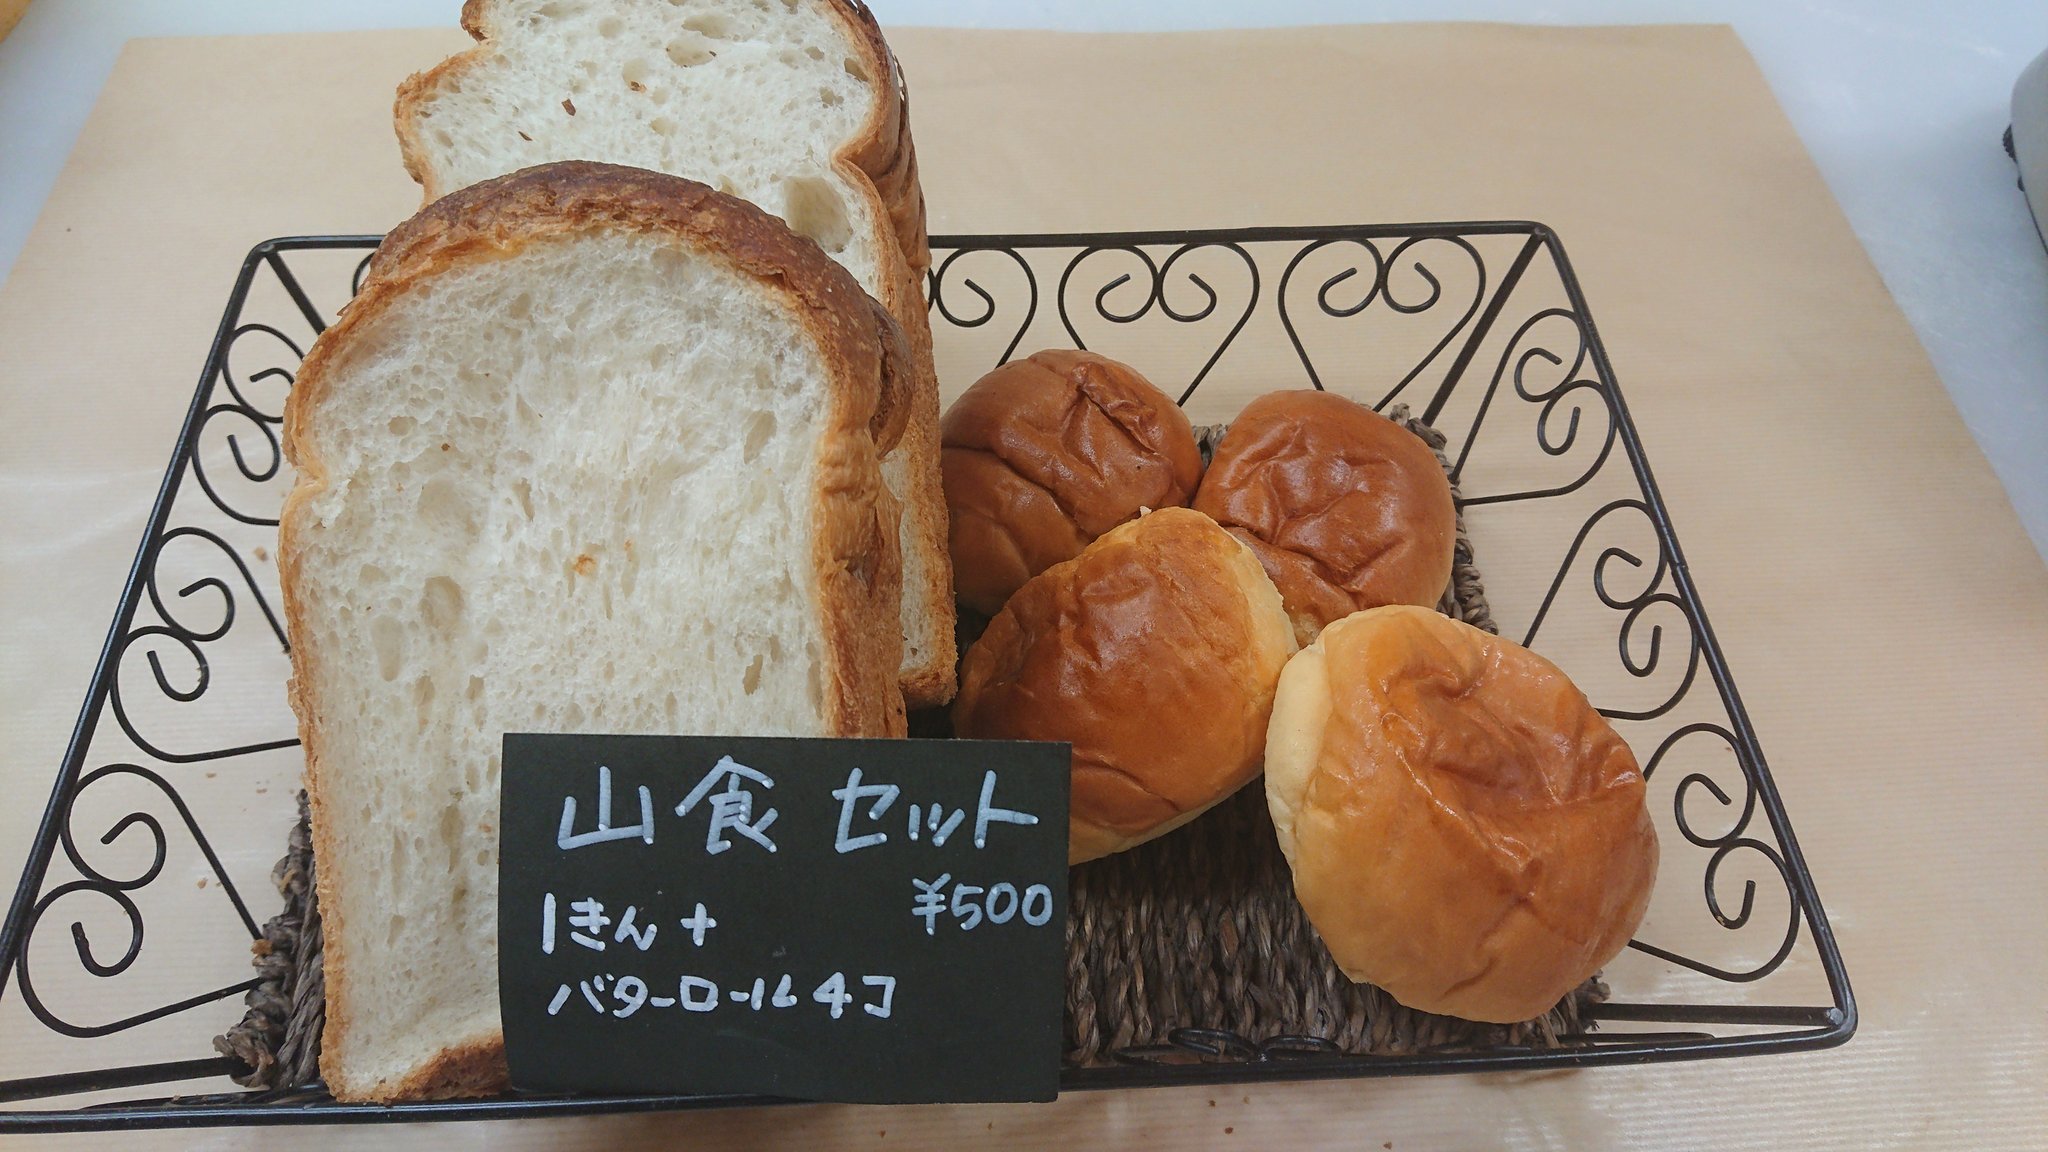 山食 セット
¥500
1きん +
バターロール 4コ